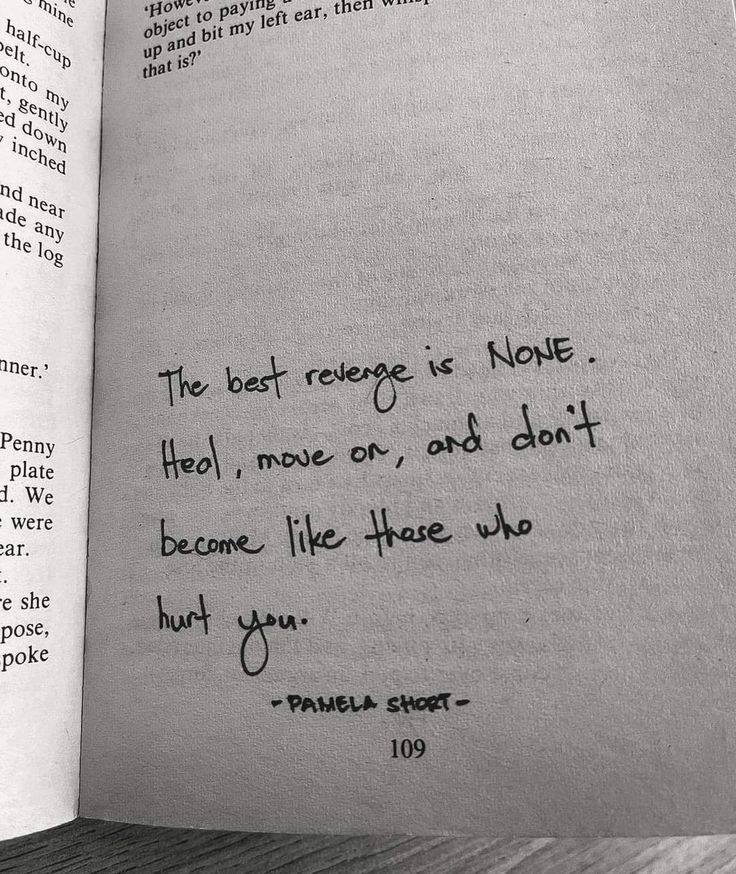 mine
half-cup
onto my
t, gently
ed down
inched
nd near
ade any
the log
nner.'
Penny
plate
d. We
were
ear.
re she
pose,
poke
object to paying
up and bit my left ear, then
that is?'
The best revenge is NONE.
Heal, move on, and don't
become like those who
hurt you.
-PAMELA SHORT-
109